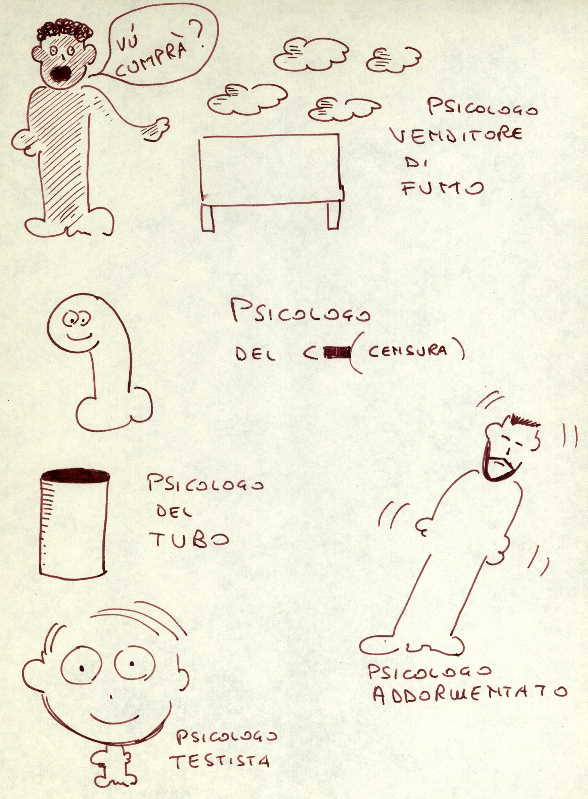 VÚ
COMPRÀ?
PSICOLOGO
VENDITORE
DI
FUMO
PSICOLOGO
DEL C (CENSURA)
PSICOLOGO
DEL
TUBO
PSICOLOGO
ADDORMENTATO
PSICOLOGO
TESTISTA